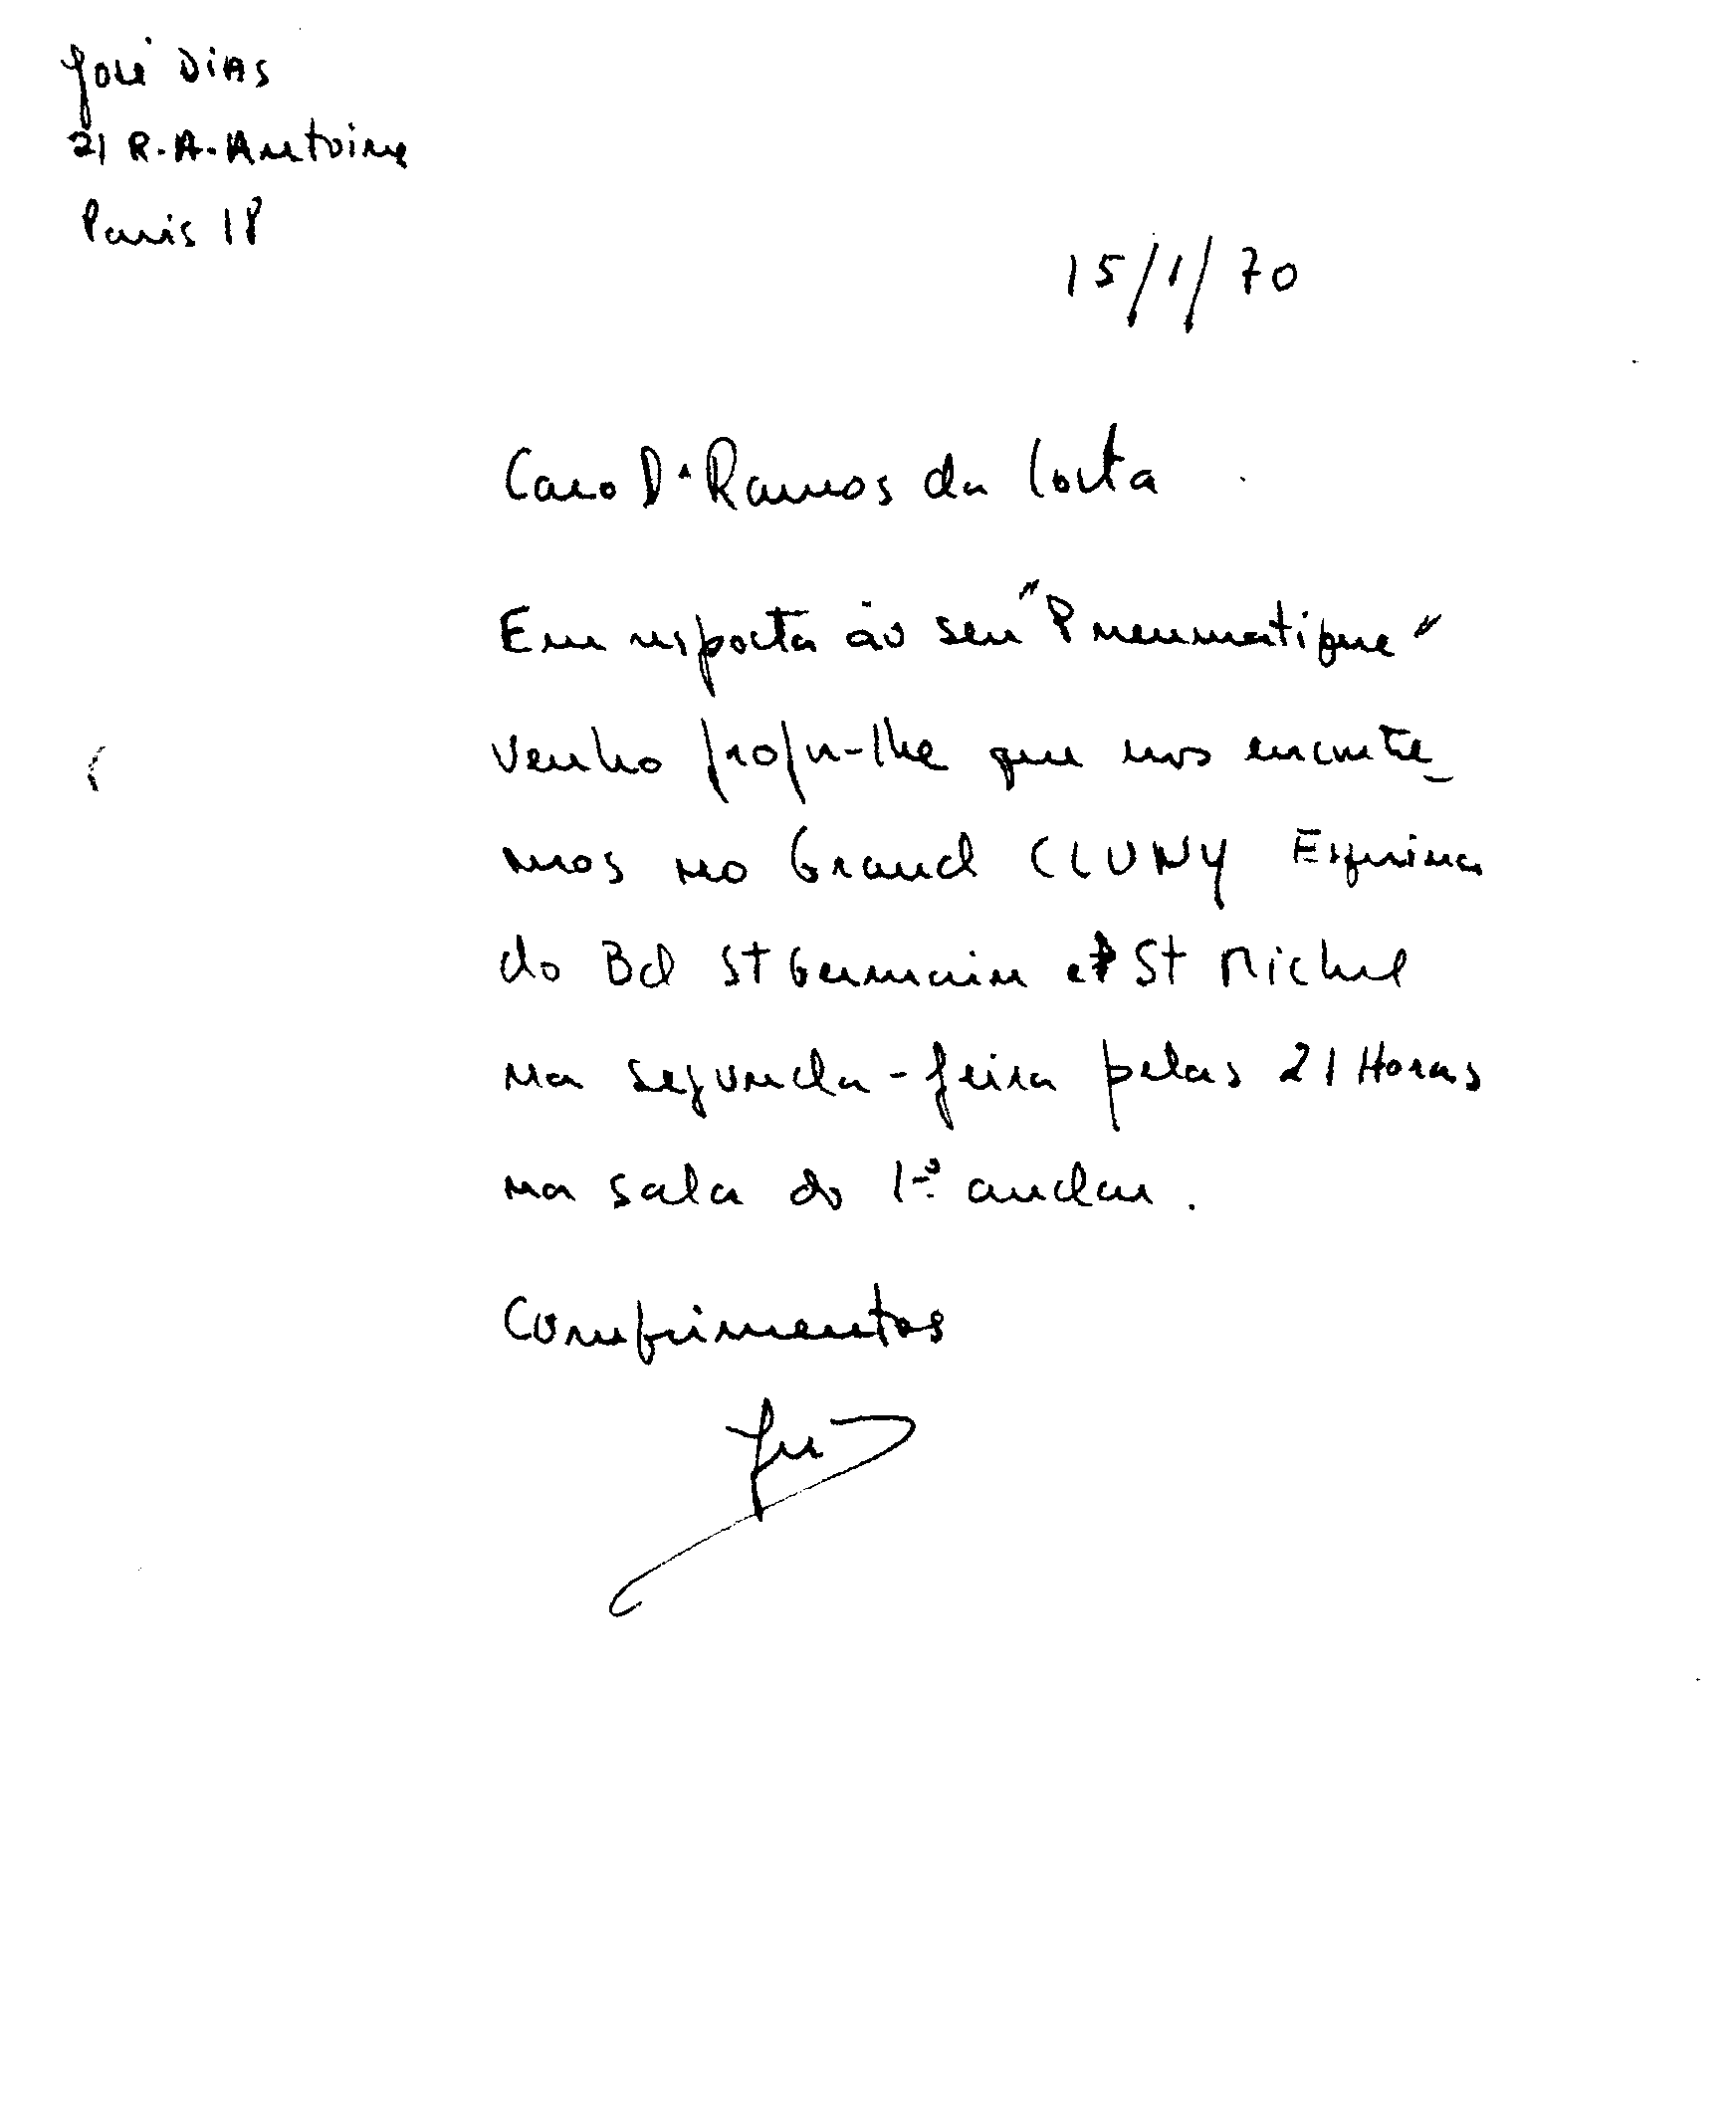 José DIAS
21 R.A. Antoine
Paris 18
15/1/70
Caro Dr Ramos da Costa
Em resposta ao seu "Pneumatique"
venho propor-lhe que nos encontre_
mos no Grand CLUNY Esquina
do Bd St Germain et St Michel
na segunda-feira pelas 21 Horas
na sala do 1º andar.
Comprimentos
José